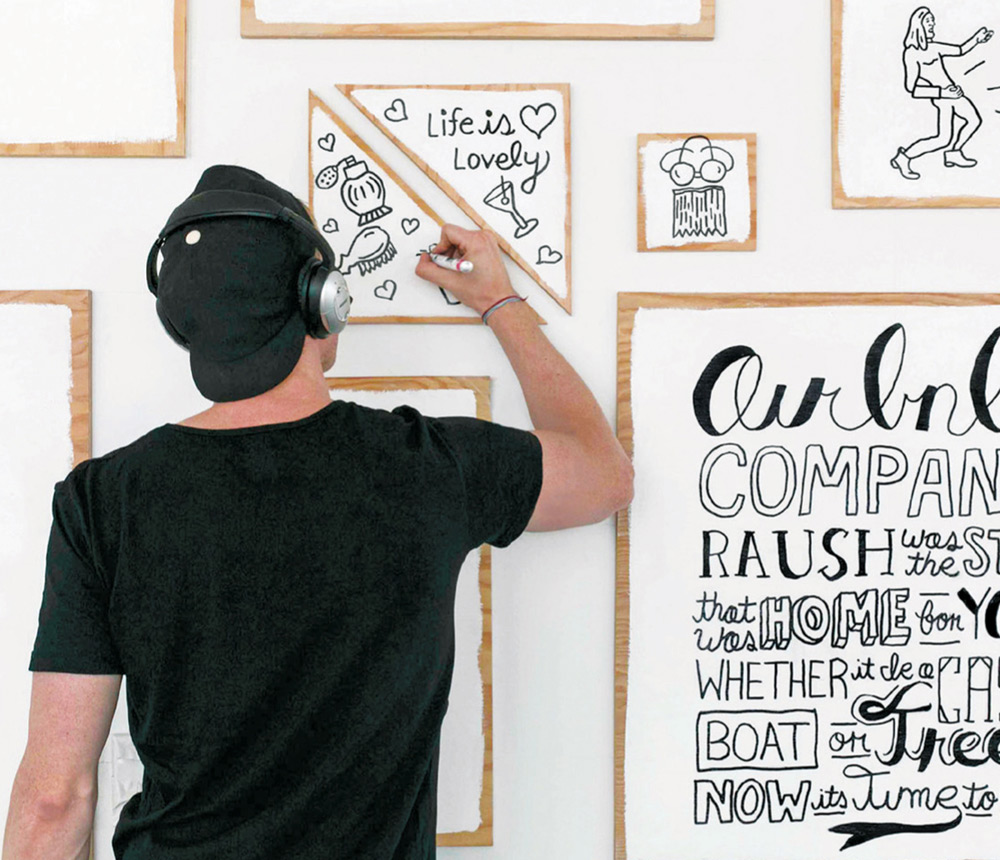 Life is
Lovely
airbnb
COMPAN
RAUSH was the ST
that was HOME for YO
WHETHER it be a CAS
BOAT or Tree
NOW its Time to